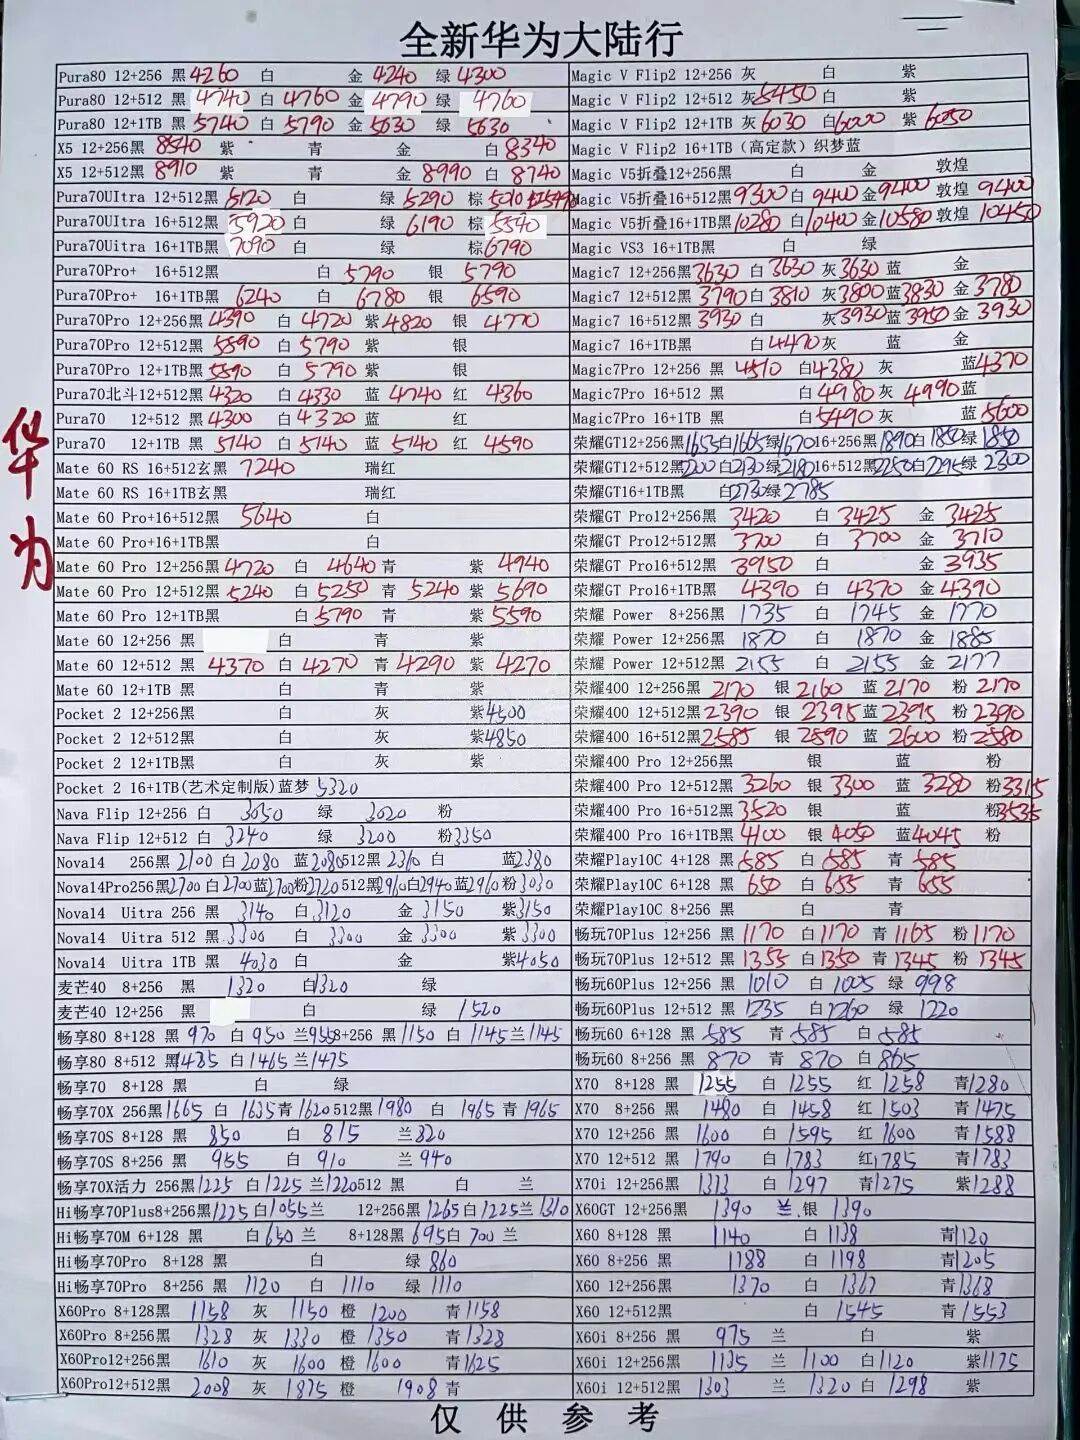 全新华为大陆行
华为
Pura80 12+256 黑4260 白 金4240 绿4300
Pura80 12+512 黑4740 白4760 金4790 绿4760
Pura80 12+1TB 黑5740 白5790 金5630 绿5630
X5 12+256黑8540 紫 青 金 白8340
X5 12+512黑8910 紫 青 金8990 白8740
Pura70UItra 12+512黑5120 白 绿5290 棕5010
Pura70UItra 16+512黑5920 白 绿6190 棕5540
Pura70Uitra 16+1TB黑7090 白 绿 棕6790
Pura70Pro+ 16+512黑 白5790 银5790
Pura70Pro+ 16+1TB黑6240 白6780 银6590
Pura70Pro 12+256黑4390 白4720 紫4820 银4770
Pura70Pro 12+512黑5590 白5790 紫 银
Pura70Pro 12+1TB黑5590 白5790 紫 银
Pura70北斗12+512黑4320 白4330 蓝4740 红4360
Pura70 12+512黑4300 白4320 蓝 红
Pura70 12+1TB黑5140 白5140 蓝5140 红4590
Mate 60 RS 16+512玄黑7240 瑞红
Mate 60 RS 16+1TB玄黑 瑞红
Mate 60 Pro+16+512黑5640 白
Mate 60 Pro+16+1TB黑 白
Mate 60 Pro 12+256黑4720 白4640 青 紫4940
Mate 60 Pro 12+512黑5240 白5250 青5240 紫5690
Mate 60 Pro 12+1TB黑 白5790 青 紫5590
Mate 60 12+256 黑 白 青 紫
Mate 60 12+512 黑4370 白4270 青4290 紫4270
Mate 60 12+1TB 黑 白 青 紫
Pocket 2 12+256黑 白 灰 紫4500
Pocket 2 12+512黑 白 灰 紫4850
Pocket 2 12+1TB黑 白 灰 紫
Pocket 2 16+1TB(艺术定制版)蓝梦5320
Nava Flip 12+256 白3050 绿3020 粉
Nava Flip 12+512 白3240 绿3200 粉3350
Nova14 256黑2100 白2080 蓝2080 512黑2310 白 蓝2380
Nova14Pro256黑2700 白2700 蓝2700 粉2720 512黑2960 白2940 蓝2960 粉3030
Nova14 Uitra 256 黑3140 白3120 金3150 紫3150
Nova14 Uitra 512 黑3300 白3300 金3300 紫3300
Nova14 Uitra 1TB 黑4030 白 金 紫4050
麦芒40 8+256 黑1320 白1320 绿
麦芒40 12+256 黑 白 绿1520
畅享80 8+128 黑970 白950 兰955 8+256 黑1150 白1145 兰1145
畅享80 8+512 黑1485 白1465 兰1475
畅享70 8+128 黑 白 绿
畅享70X 256黑1665 白1635 青1620 512黑1980 白1965 青1965
畅享70S 8+128 黑850 白815 兰820
畅享70S 8+256 黑955 白910 兰940
畅享70X活力 256黑1225 白1225 兰1220 512 黑 白 兰
Hi畅享70Plus8+256黑1225 白1055 兰 12+256黑1265 白1225 兰1310
Hi畅享70M 6+128 黑 白650 兰 8+128黑695 白700 兰
Hi畅享70Pro 8+128 黑 白 绿860
Hi畅享70Pro 8+256 黑1120 白1110 绿1110
X60Pro 8+128黑1158 灰1150 橙1200 青1158
X60Pro 8+256黑1328 灰1330 橙1350 青1328
X60Pro12+256黑1610 灰1600 橙1600 青1625
X60Pro12+512黑2008 灰1875 橙1908 青
Magic V Flip2 12+256 灰 白 紫
Magic V Flip2 12+512 灰5450 白 紫
Magic V Flip2 12+1TB 灰6030 白6000 紫6050
Magic V Flip2 16+1TB（高定款）织梦蓝
Magic V5折叠12+256黑 白 金 敦煌
Magic V5折叠16+512黑9300 白9400 金9400 敦煌9400
Magic V5折叠16+1TB黑10280 白10400 金10580 敦煌10450
Magic VS3 16+1TB黑 白 绿
Magic7 12+256黑3630 白3630 灰3630 蓝 金
Magic7 12+512黑3790 白3810 灰3800 蓝3830 金3780
Magic7 16+512黑3930 白 灰3930 蓝3950 金3930
Magic7 16+1TB黑 白4470 灰 蓝 金
Magic7Pro 12+256 黑4510 白4380 灰 蓝4370
Magic7Pro 16+512 黑 白4980 灰4990 蓝
Magic7Pro 16+1TB 黑 白5490 灰 蓝5600
荣耀GT12+256黑1655 白1605 绿1670 16+256黑1890 白1850 绿1850
荣耀GT12+512黑2200 白2130 绿2180 16+512黑2250 白2295 绿2300
荣耀GT16+1TB黑 白2730 绿2785
荣耀GT Pro12+256黑3420 白3425 金3425
荣耀GT Pro12+512黑3700 白3700 金3710
荣耀GT Pro16+512黑3950 白 金3935
荣耀GT Pro16+1TB黑4390 白4370 金4390
荣耀 Power 8+256黑1735 白1745 金1770
荣耀 Power 12+256黑1870 白1870 金1885
荣耀 Power 12+512黑2155 白2155 金2177
荣耀400 12+256黑2170 银2160 蓝2170 粉2170
荣耀400 12+512黑2390 银2395 蓝2395 粉2390
荣耀400 16+512黑2585 银2590 蓝2600 粉2580
荣耀400 Pro 12+256黑 银 蓝 粉
荣耀400 Pro 12+512黑3260 银3300 蓝3280 粉3315
荣耀400 Pro 16+512黑3520 银 蓝 粉3535
荣耀400 Pro 16+1TB黑4100 银4050 蓝4045 粉
荣耀Play10C 4+128 黑585 白585 青585
荣耀Play10C 6+128 黑650 白655 青655
荣耀Play10C 8+256 黑 白 青
畅玩70Plus 12+256 黑1170 白1170 青1165 粉1170
畅玩70Plus 12+512 黑1355 白1350 青1345 粉1345
畅玩60Plus 12+256 黑1010 白1005 绿998
畅玩60Plus 12+512 黑1235 白1260 绿1220
畅玩60 6+128 黑585 青585 白585
畅玩60 8+256 黑870 青870 白865
X70 8+128 黑1255 白1255 红1258 青1280
X70 8+256 黑1480 白1458 红1503 青1475
X70 12+256 黑1600 白1595 红1600 青1588
X70 12+512 黑1790 白1783 红1785 青1783
X70i 12+256 黑1313 白1297 青1275 紫1288
X60GT 12+256黑1390 兰.银1390
X60 8+128 黑1140 白1138 青1120
X60 8+256 黑1188 白1198 青1205
X60 12+256 黑1370 白1367 青1368
X60 12+512黑 白1545 青1553
X60i 8+256 黑975 兰 白 紫
X60i 12+256黑1135 兰1100 白1120 紫1175
X60i 12+512黑1303 兰1320 白1298 紫
仅供参考